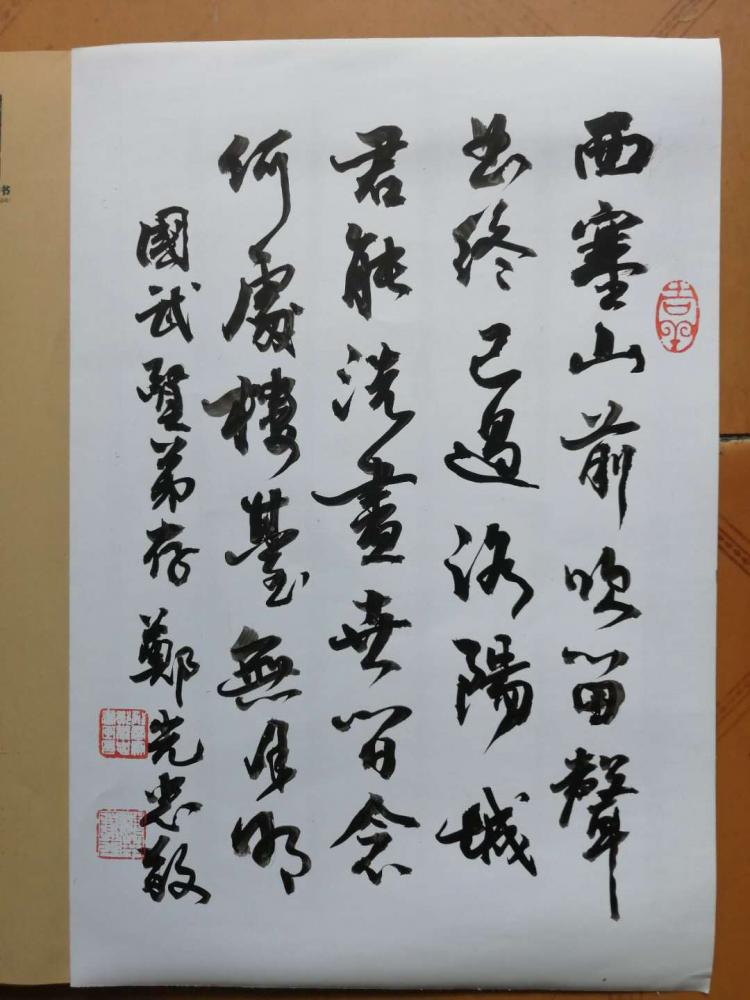 西塞山前吹笛聲
曲終已過洛陽城
君能洗盡世間念
何處樓臺無月明
國武賢弟存 鄭光忠敬
吉
书